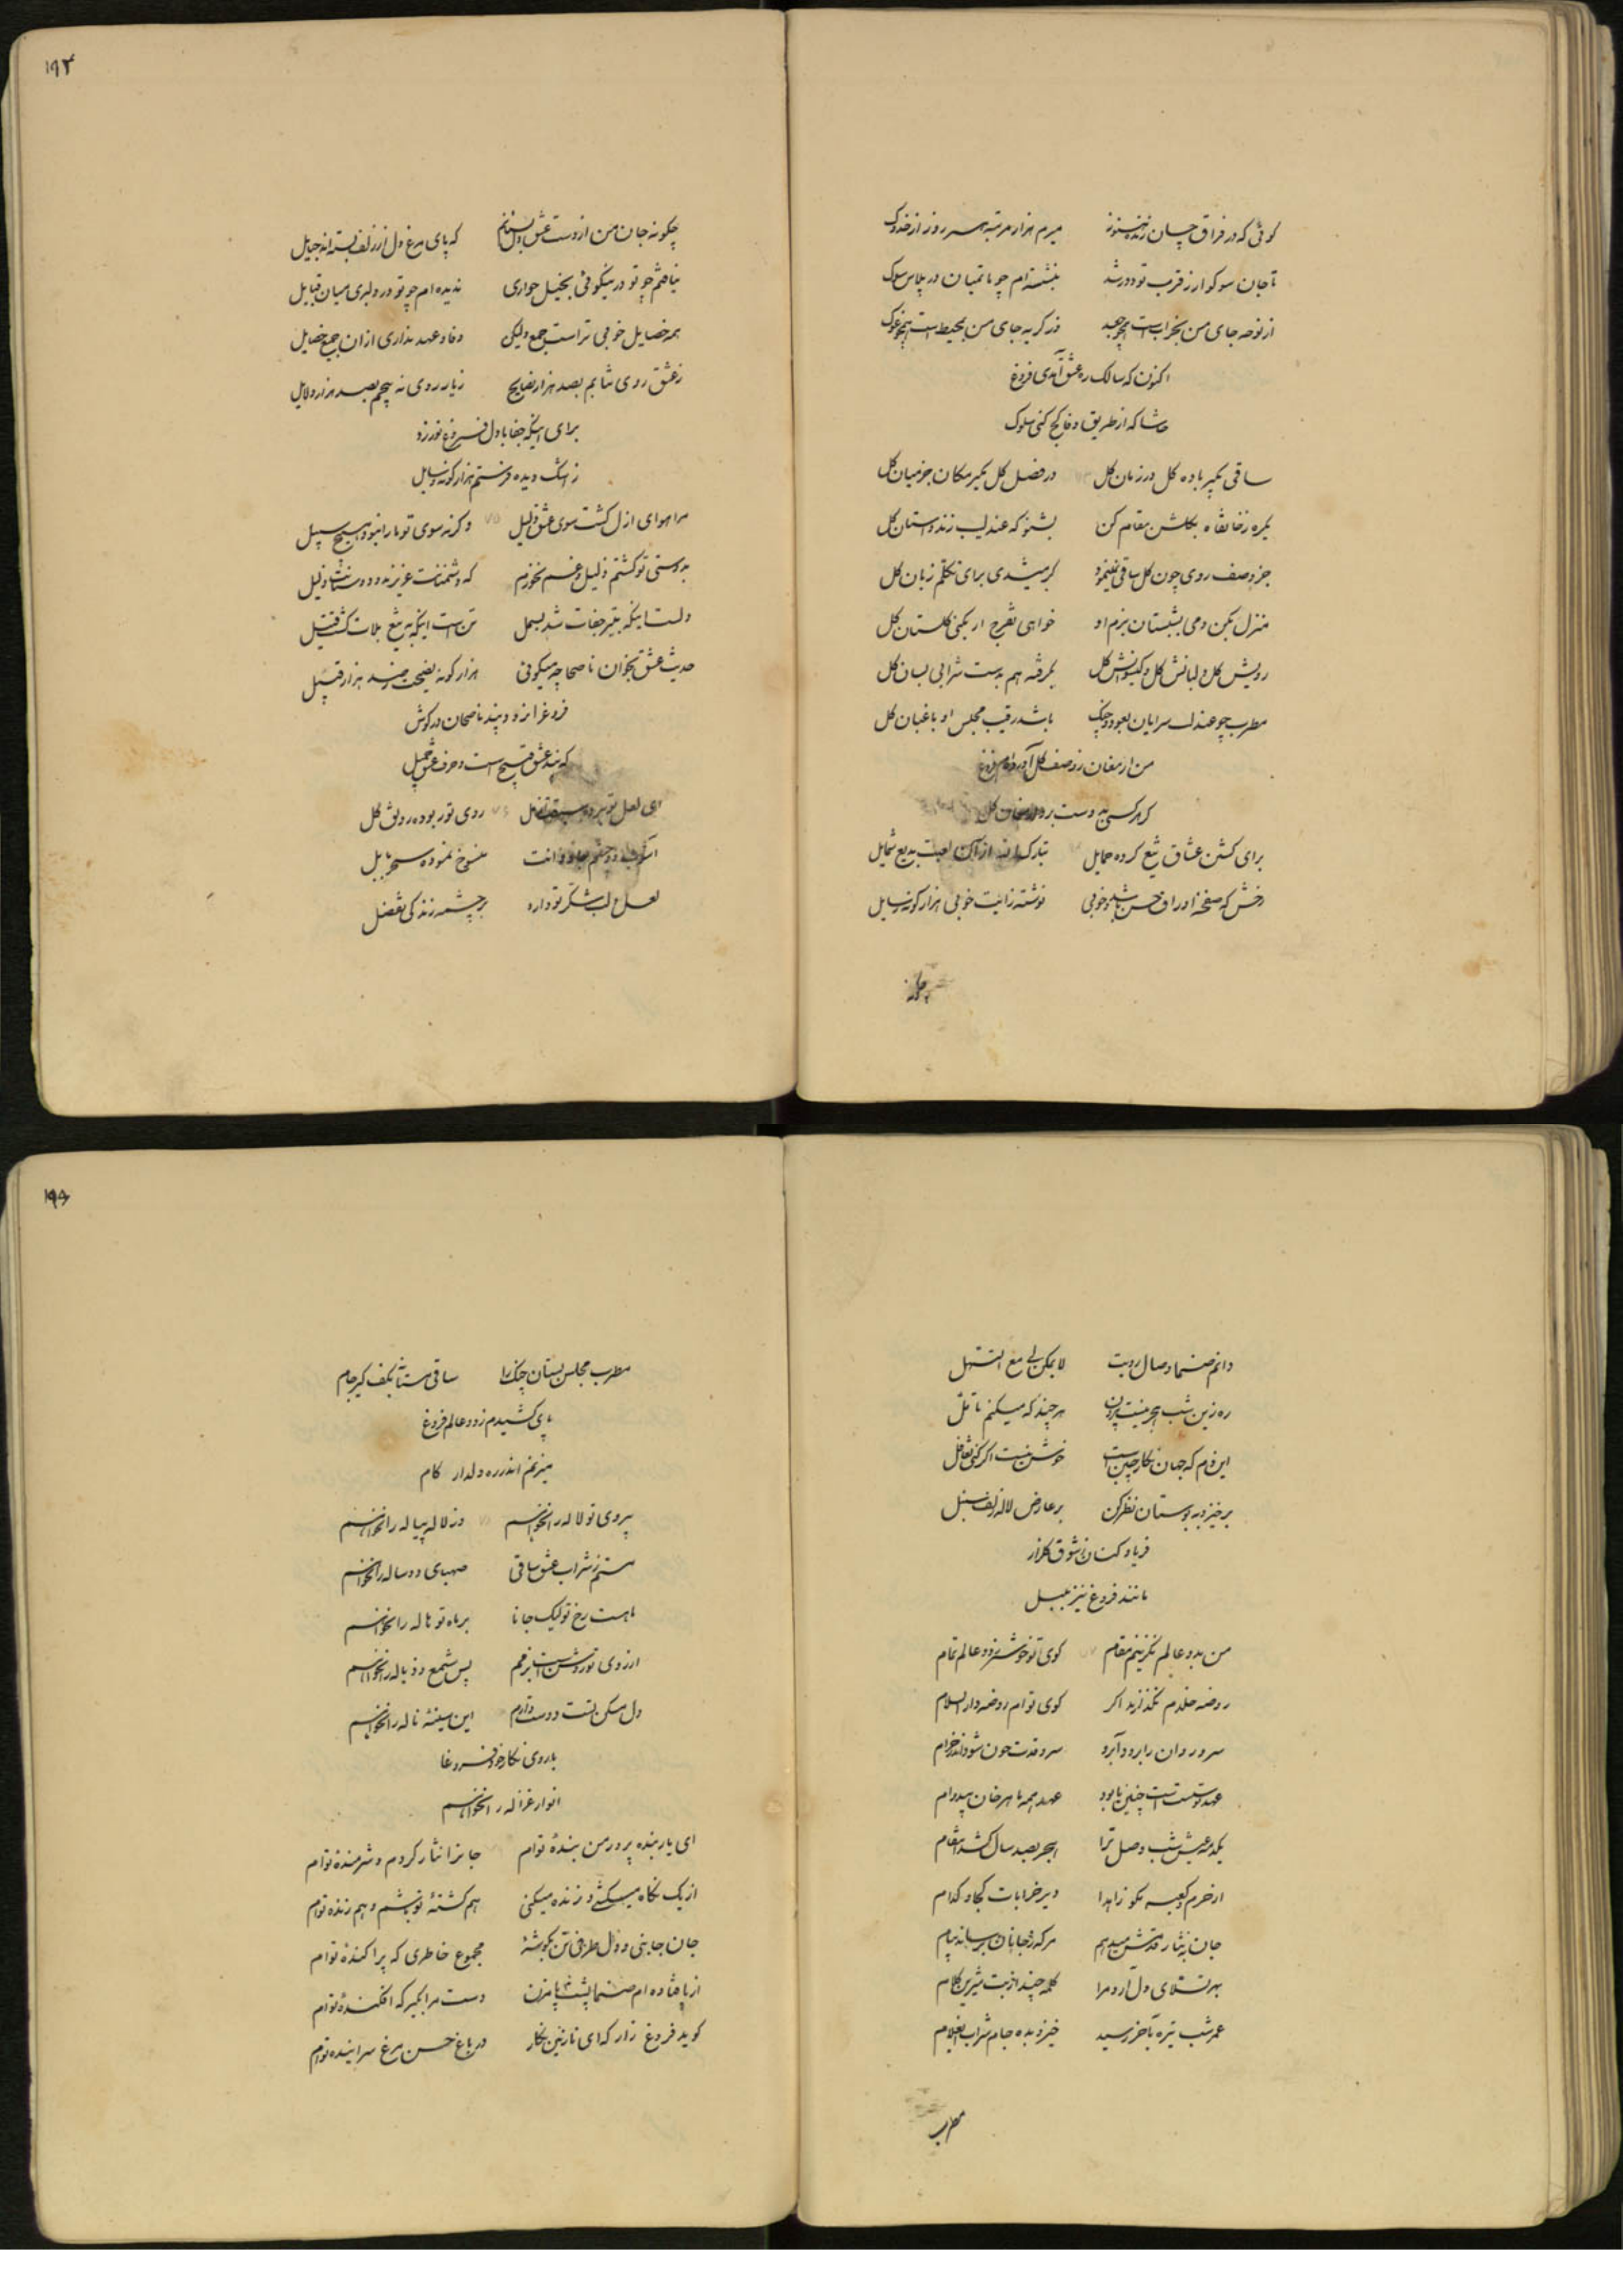 گوئی که در فراق چسان زنده هنوز    میرم هزار مرتبه هر روز از
تا جان سوکوار ز قرب تو دور شد    بنشسته ام چو ماتمیان در پلاس سوک
از نوحه جای من بخراب است همچو جغد    وز گریه جای من بمحیط است همچو غوک
اکنون که سالک ره عشق آمدی فروغ
حاشا که از طریق وفا کج کنی سلوک
ساقی بگیر باده گل در زمان گل    در فصل گل مگیر مکان جز میان گل
یکره ز خانقاه بگلشن مقام کن    بشنو که عندلیب زند داستان گل
جز وصف روی چون گل ساقی نمینمود    گر میشدی برای تکلم زبان گل
منزل بکن دمی بشبستان بزم او    خواهی تفرج ار بکنی گلستان گل
رویش گل و لبانش گل و گیسوانش گل    بگرفته هم بدست شرابی بسان گل
مطرب چو عندلیب سرایان بعود و چنگ    باشد رقیب مجلس او باغبان گل
من ارمغان ز وصف گل آورده ام فروغ
گر هرکسی به دست برد ارمغان گل
برای کشتن عشاق تیغ کرده حمایل    تبارک الله از آن لعبت بدیع شمایل
رخش که صفحه اوراق حسن باشد و خوبی    نوشته زایت خوبی هزار گونه رسایل
چگونه
۱۹۴
چگونه جان من از دست عشق دل بستانم    که پای مرغ دل از زلف بسته اند حبایل
نیافتم چو تو در نیکوئی بخیل جواری    ندیده ام چو تو در دلبری میان قبایل
همه خصایل خوبی تراست جمع ولیکن    وفا و عهد نداری از ان جمیع خصایل
ز عشق روی نتابم بصد هزار نصایح    ز یار روی نه پیچم بصد هزار دلایل
برای اینکه جفا با دل فروغ نورزد
ز اشک دیده فرستم هزار گونه رسایل
مرا هوای ازل گشت سوی عشق دلیل    وگرنه سوی تو ما را نبود هیچ سبیل
بدوستی تو گشتم ذلیل و غم نخورم    که دشمنانت عزیزند و دوستانت ذلیل
دلست اینکه بتیر جفات شد بسمل    تن است اینکه به تیغ بلات گشت قتیل
حدیث عشق بخوان ناصحا چه میگوئی    هزار گونه نصیحت صد هزار قبیل
فروغ را نرود پند ناصحان در گوش
که پند عشق قبیح است و حرف عشق جمیل
ای لعل تو برده سبقت مل    روی تو ربوده رونق گل
آشوب دو چشم جادوانت    منسوخ نموده سحر بابل
لعل لب شکر تو دارد    بر چشمه زندگی تفضل
دانم صنما وصال رویت    لا یمکن لی مع التسهل
ره زین شب هجر نیست بیرون    هر چند که میکنم تامل
این دم که جهان نگار چین است    خوش نیست اگر کنی تغافل
برخیز و به بوستان نظر کن    بر عارض لاله زلف سنبل
فریاد کنان ز شوق گلزار
مانند فروغ نیز بلبل
من بدو عالم نگزینم مقام    کوی تو خوشتر ز دو عالم تمام
روضه خلدم نگذارید اگر    کوی توام روضه دار السلام
سرو روان را برود آبرو    سرو قدت چون شود اندر خرام
عهد تو سست است چنین یا بود    عهد همه ماهرخان بیدوام
یکدمه عیش شب وصل ترا    هجر بصد سال کشد انتقام
از حرم و کعبه مگو زاهدا    دیر خرابات کجا و کدام
جان به نثار قدمش میدهم    هرکه ز جانان برساند پیام
بهر تسلای دل آرد مرا    کلمه چند از بت شیرین کلام
عمر شب تیره بآخر رسید    خیز و بده جام شراب ایغلام
مطرب
۱۹۵
مطرب مجلس بستان چنگ را    ساقی مستان بکف گیر جام
پای کشیدم ز دو عالم فروغ
میزنم اندر ره دلدار گام
با روی تو لاله را نخواهم    وز لاله پیاله را نخواهم
مستم ز شراب عشق ساقی    صهبای دو ساله را نخواهم
ماهست رخ تو لیک جانا    بر ماه تو هاله را نخواهم
از روی تو روشن است بزمم    پس شمع و ذباله را نخواهم
دل مسکن تست دوست دارم    این سینه ناله را نخواهم
با روی نگار خود فروغا
انوار غزاله را نخواهم
ای یار بنده پرور من بندهٔ توام    جانرا نثار کردم و شرمندهٔ توام
از یک نگاه میکشی و زنده میکنی    هم کشتهٔ تو باشم و هم زنده توام
جان جانبی و دل طرفی تن بگوشهٔ    مجموع خاطری که پراکندهٔ توام
از پا فتاده ام صنما پشت پا مزن    دست مرا بگیر که افکندهٔ توام
گوید فروغ زار که ای نازنین نگار    در باغ حسن مرغ سراینده توام